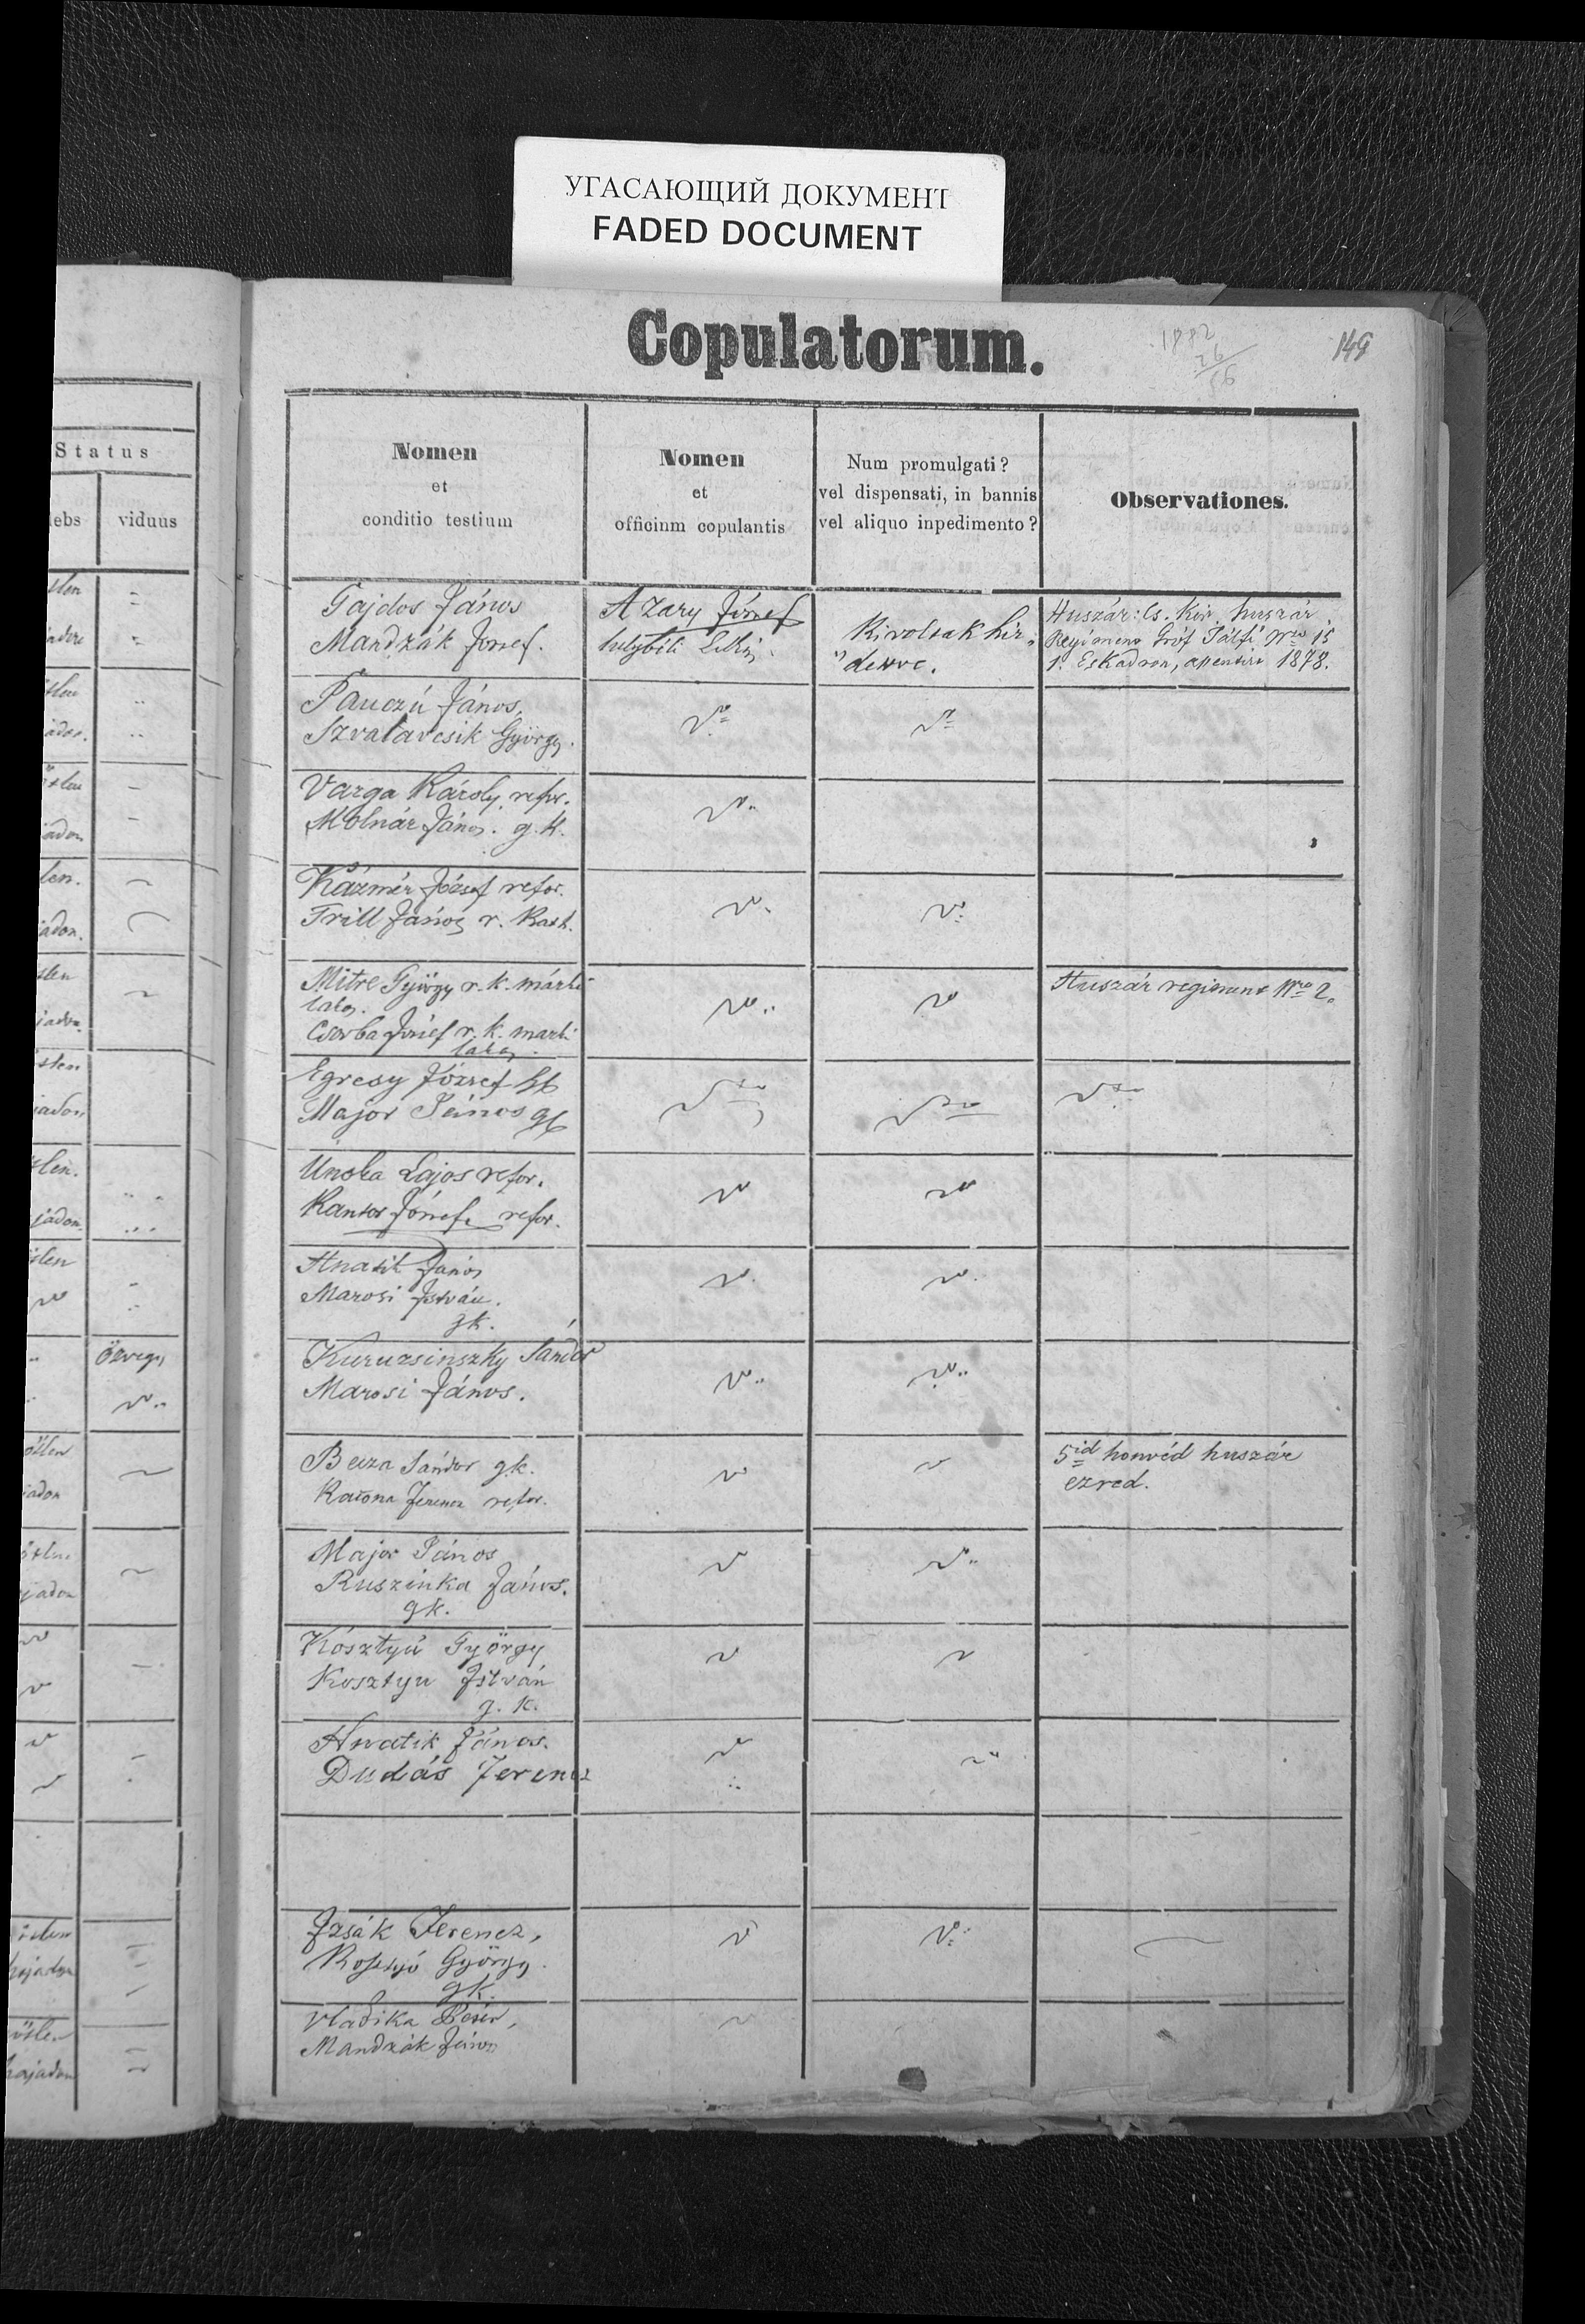 УГАСАЮЩИЙ ДОКУМЕНТ
FADED DOCUMENT
Copulatorum.
1882
26
56
149
Status
viduus
Nomen
et
conditio testium
Nomen
et
officium copulantis
Num promulgati?
vel dispensati, in bannis
vel aliquo inpedimento?
Observationes.
Gajdos János
Mandzák József.
Azary József
helybéli Lelkész
Ki voltak hir
detve.
Huszár: Cs. Kir. huszár
Regiment Gróf Pálfi Nro 15
1. Eskadron, 1878.
Pauczú János,
Szvalavcsik György.
Varga Károly, refor.
Molnár János. g. K.
Kázmér József refor.
Trill János r. Kath.
Mitre György r. k. márki
lakos.
Csorba József r. k. marki
lakos.
Huszár regiment Nro 2.
Egresy József
Major János gk
Lajos refor.
Kantor József refor.
Hnatik János
Marosi István.
gk.
Kuruzsinszky Sándor
Marosi János.
özvegy
Beiza Sándor gk.
Katona Ferencz refor.
5id honvéd huszár
ezred.
Major János
Ruszinka János.
gk.
Kósztyú György
Kosztyu István
g. K.
Hnatik János.
Dudás Ferencz
Izsák Ferencz,
Kosztyó György
gk.
Vladika Péter,
Mandzák János